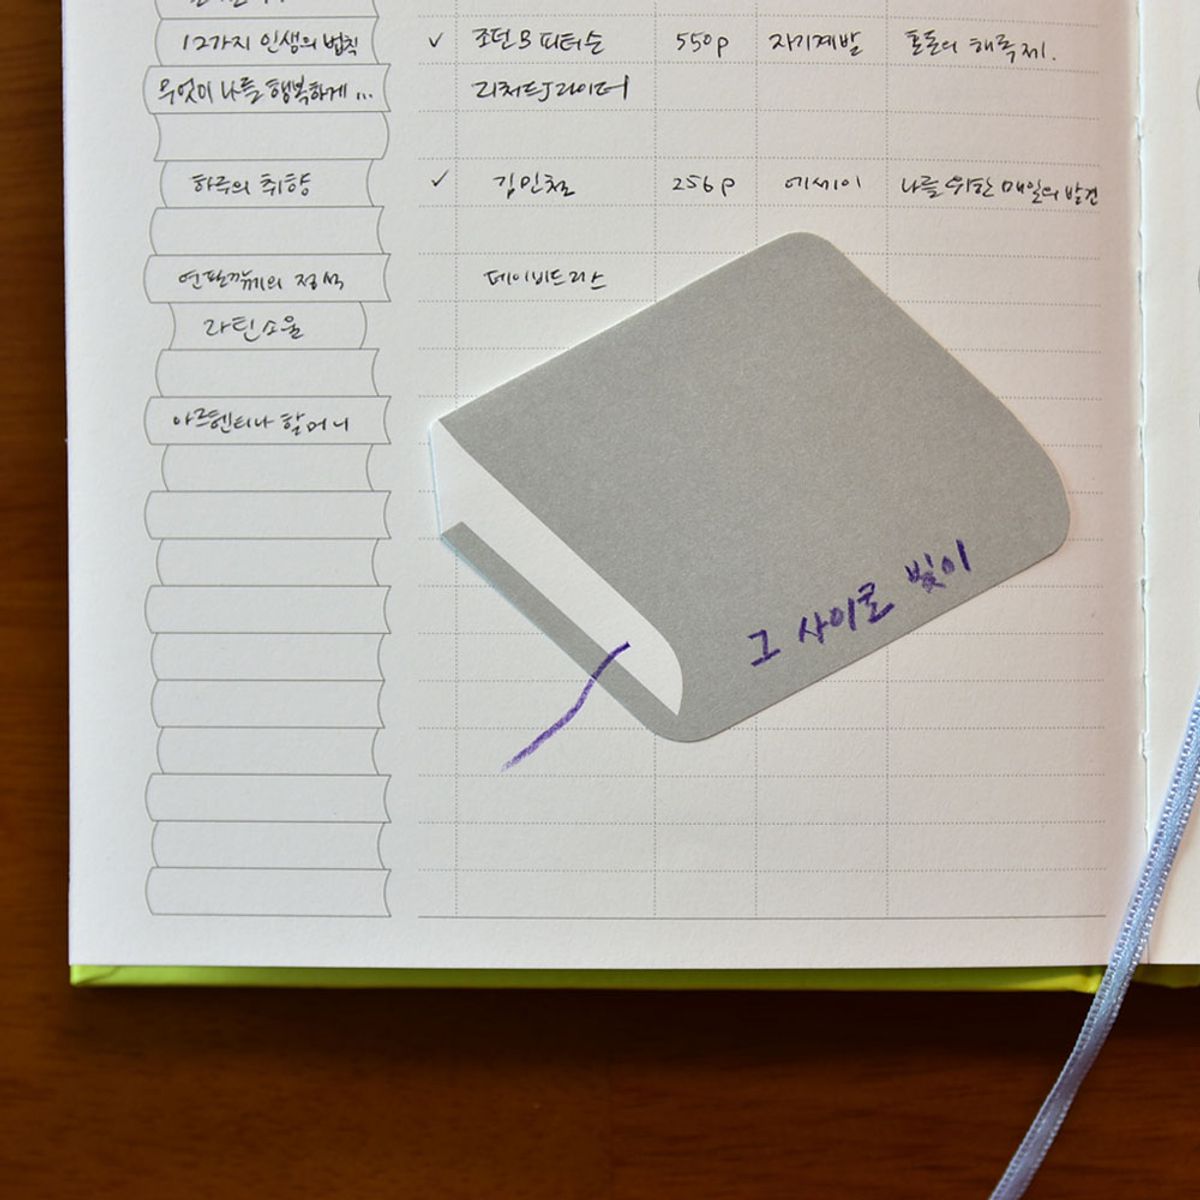 12가지 인생의 법칙 ✓ 조던 B 피터슨 550p 자기계발 혼돈의 해독제.
무엇이 나를 행복하게 ... 리처드 J 라이더
하루의 취향 ✓ 김민철 256p 에세이 나를 위한 매일의 발견
연판깎기의 정석 데이비드 리스
라틴소울
아르헨티나 할머니
그 사이로 빛이